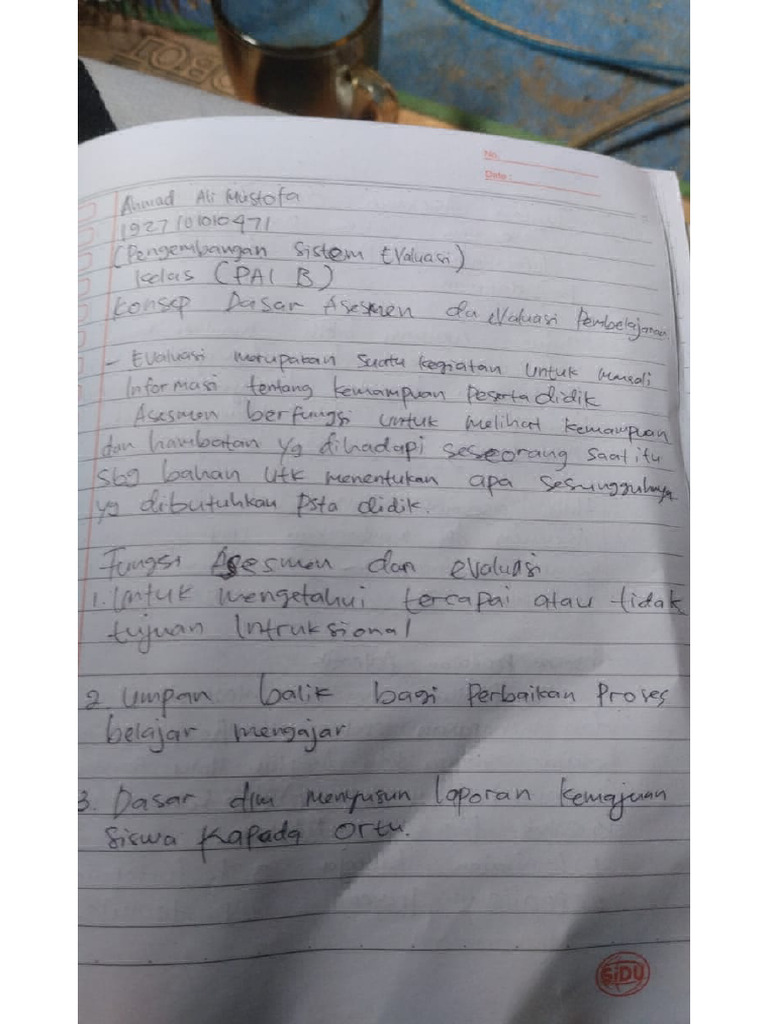 No.
Date :
Ahmad Ali Mustofa
1927101010471
(Pengembangan Sistem Evaluasi)
Kelas (PAI B)
Konsep Dasar Asesmen da evaluasi Pembelajaran
- Evaluasi merupakan suatu kegiatan untuk menggali
Informasi tentang kemampuan Peserta didik
Asesmen berfungsi untuk melihat kemampuan
dan hambatan yg dihadapi seseorang saat itu
sbg bahan utk menentukan apa sesungguhnya
yg dibutuhkan psta didik.
Fungsi Asesmen dan evaluasi
1. Untuk mengetahui tercapai atau tidak
tujuan Intruksional
2. Umpan balik bagi Perbaikan Proses
belajar mengajar
3. Dasar dlm menyusun laporan kemajuan
Siswa Kapada ortu.
SiDU